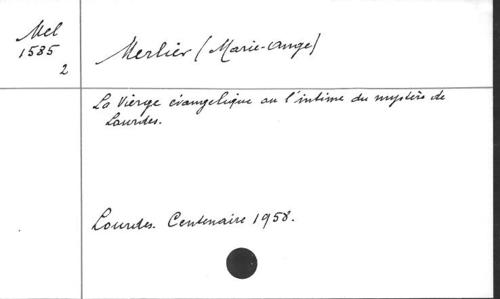 Mel
1585
2
Merlier (Marie-Ange)
La Vierge évangélique ou l'intime du mystère de
Lourdes.
Lourdes. Centenaire 1958.